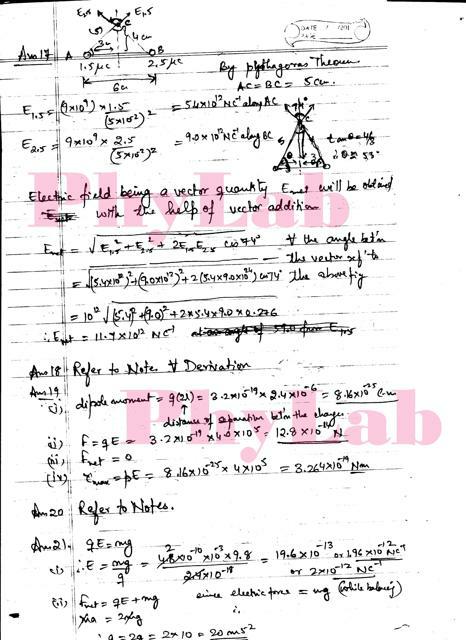 E1,5 E1,5
C
DATE
PAGE
Ans 17 A 3cm 4cm B
1.5μC 2.5μC
6cm
By pythagoras Theorem
AC = BC = 5cm.
E1,5 = (9x10⁹) x 1.5 / (5x10⁻²)² = 5.4x10¹² NC⁻¹ along AC
E2,5 = 9x10⁹ x 2.5 / (5x10⁻²)² = 9.0x10¹² NC⁻¹ along BC
tanθ = 4/3
∴ θ = 53°
Electric field being a vector quantity Enet will be obtained
with the help of vector addition
PhyLab
Enet = √E1,5² + E2,5² + 2E1,5E2,5 cos 74° ∀ the angle betn
the vector ref to
= √(5.4x10¹²)² + (9.0x10¹²)² + 2(5.4x9.0x10²⁴) cos 74° the above fig
= 10¹² √(5.4)² + (9.0)² + 2x5.4x9.0x0.276
∴ Enet = 11.7x10¹² NC⁻¹ at an angle of 59.0 from E1,5
Ans 18 Refer to Notes ∀ Derivation
PhyLab
Ans 19
(i) dipole moment = q(2l) = 3.2x10⁻¹⁹ x 2.4x10⁻⁶ = 8.16x10⁻²⁵ Cm
distance of separation betn the charges
ii) F = qE = 3.2x10⁻¹⁹ x 4.0x10⁵ = 12.8x10⁻¹⁴ N
(iii) Fnet = 0
(iv) τmax = pE = 8.16x10⁻²⁵ x 4x10⁵ = 3.264x10⁻¹⁹ Nm
Ans 20 Refer to Notes.
Ans 21. qE = mg
(i) ∴ E = mg / q = 4.8x10⁻¹⁰ x10⁻³ x 9.8 / 2.4x10⁻¹⁸ = 19.6x10⁻¹³ or 1.96x10⁻¹² NC⁻¹
or 2x10⁻¹² NC⁻¹
(ii) Fnet = qE + mg since electric force = mg (while balancing)
ma = 2mg ∴
∴ a = 2g = 2x10 = 20 ms⁻²